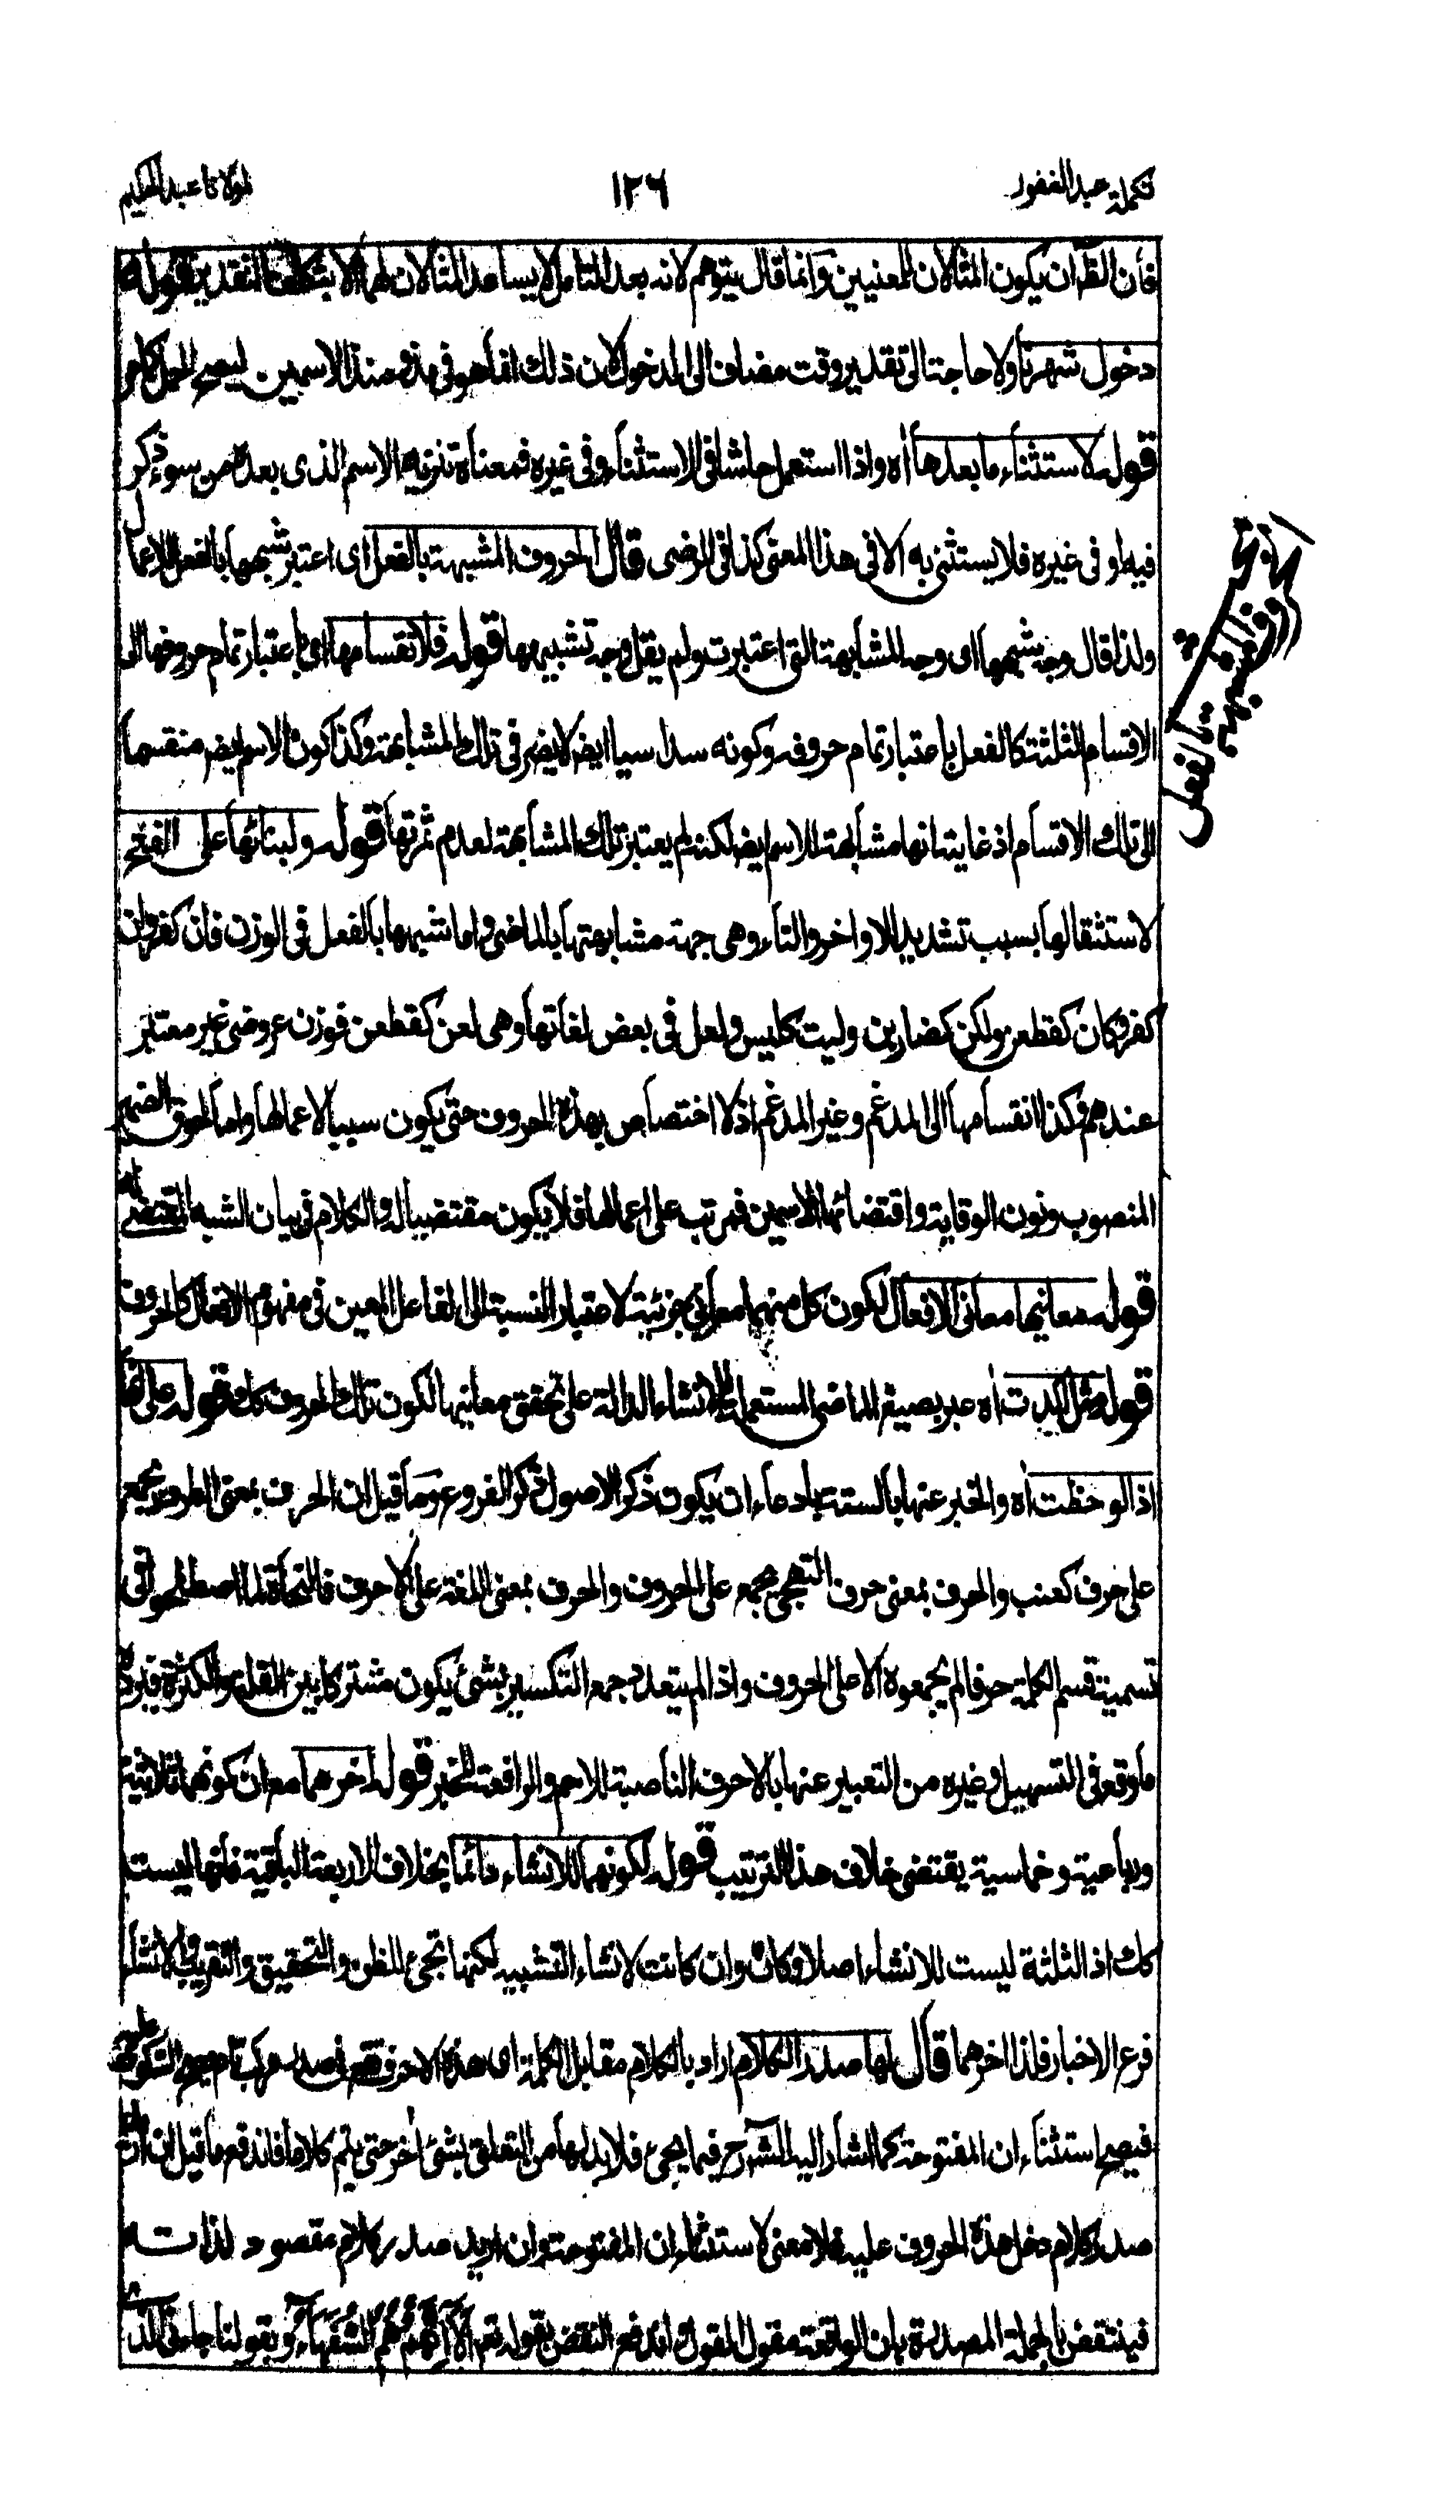 تكملة عبد الغفور
١٢٦
لمولانا عبد الحكيم
فأن الظاهر ان يكون المثالان للمعنيين وانما قال يتوهم لانه بعد التامل لا يساعد المثالان لهما الا التقدير قوله
دخول شهرنا ولا حاجة الى تقدير وقت مضاف الى المدخول لان ذلك انما هو في مذ ومنذ الاسمين ليصح الحمل كما مر
قوله لاستثناء ما بعدها اه واذا استعمل حاشا في الاستثناء وفي غيره فمعناه تنزيه الاسم الذى بعده من سوء ذكر
فيه او فى غيره فلا يستثنى به الا في هذا المعنى كذا في الرضى قال الحروف المشبهة بالفعل اى اعتبر تشبيهها بالفعل للاعمال
ولذا قال وجه شبهها اى وجه المشابهة التى اعتبرت ولم يقل وجه تشبيهها قوله فلانقسامها اى باعتبار تمام حروفها الى
الاقسام الثلثة كالفعل باعتبار تمام حروفه وكونه سداسيا ايض لا يضر في تلك المشابهة وكذا كون الاسم ايض منقسما
الى تلك الاقسام اذ غايته انها مشابهة للاسم ايض لكنه لم يعتبر تلك المشابهة لعدم ثمرتها قوله ولبنائها على الفتح
لاستثقالها بسبب تشديد الاواخر والتاء وهى جهة مشابهتها بالماضى واما شبهها بالفعل في الوزن فان كفر وان
كفر وكان كقطعن ولكن كضاربن وليت كليس ولعل في بعض لغاتها وهى لعن كقطعن فوزن عروضى غير معتبر
عندهم وكذا انقسامها الى المدغم وغير المدغم اذ لا اختصاص بهذه الحروف حتى يكون سببا لاعمالها واما لحوق الضمير
المنصوب ونون الوقاية واقتضائها الاسمين فمرتب على اعمالها فلا يكون مقتضيا له والكلام في بيان الشبه المقتضى
قوله معانيها معانى الافعال لكون كل منهما معانى جزئية لاعتبار النسبة الى الفاعل المعين فى مفهوم الافعال كالحروف
قوله مثل اكدت اه عبر بصيغة الماضى المستعمل للانشاء الدالة على تحقق معانيها لكون تلك الحروف كك قوله على انها
اذا لوحظت اه والمخبر عنها بالستة بادعاء ان يكون ذكر الاصول ذكر الفروع وما قيل ان الحرف بمعنى الطرف يجمع
على حرف كعنب والحرف بمعنى حرف التهجى يجمع على الحروف والحرف بمعنى اللغة على الاحرف فالنحاة لما اصطلحوا فى
تسمية قسم الكلمة حرفا لم يجمعوه الا على الحروف واذا لم يتعدد جمع التكسير بشئ يكون مشتركا بين القلة والكثرة فيرده
ما وقع في التسهيل وغيره من التعبير عنها بالاحرف الناصبة للاسم والرافعة للخبر قوله اخرهما مع ان كونها ثلاثية
ورباعية وخماسية يقتضى خلاف هذا الترتيب قوله لكونهما للانشاء دائما بخلاف الاربعة الباقية فانها ليست
كك اذ الثلثة ليست للانشاء اصلا وكان وان كانت لانشاء التشبيه لكنها تجئ للظن والتحقيق والتقريب والانشاء
فرع الاخبار فلذا اخرهما قال لها صدر الكلام اراد بالكلام مقابل الكلمة اى هذه الاحرف تقع في صدر مركب تام
فيصح استثناء ان المفتوحة كما اشار اليه الشرح فيما يجئ فلا بد لها من التعلق بشئ اخر حتى يتم كلاما فاندفع ما قيل ان اريد
صدر كلام دخل هذه الحروف عليه فلا معنى لاستثناء ان المفتوحة وان اريد صدر كلام مقصود لذاته
فينتقض بالجملة المصدرة بان الواقعة مقول القول اندفع النقض بقوله تعم الا انهم هم السفهاء وبقولنا جاءنى الذى